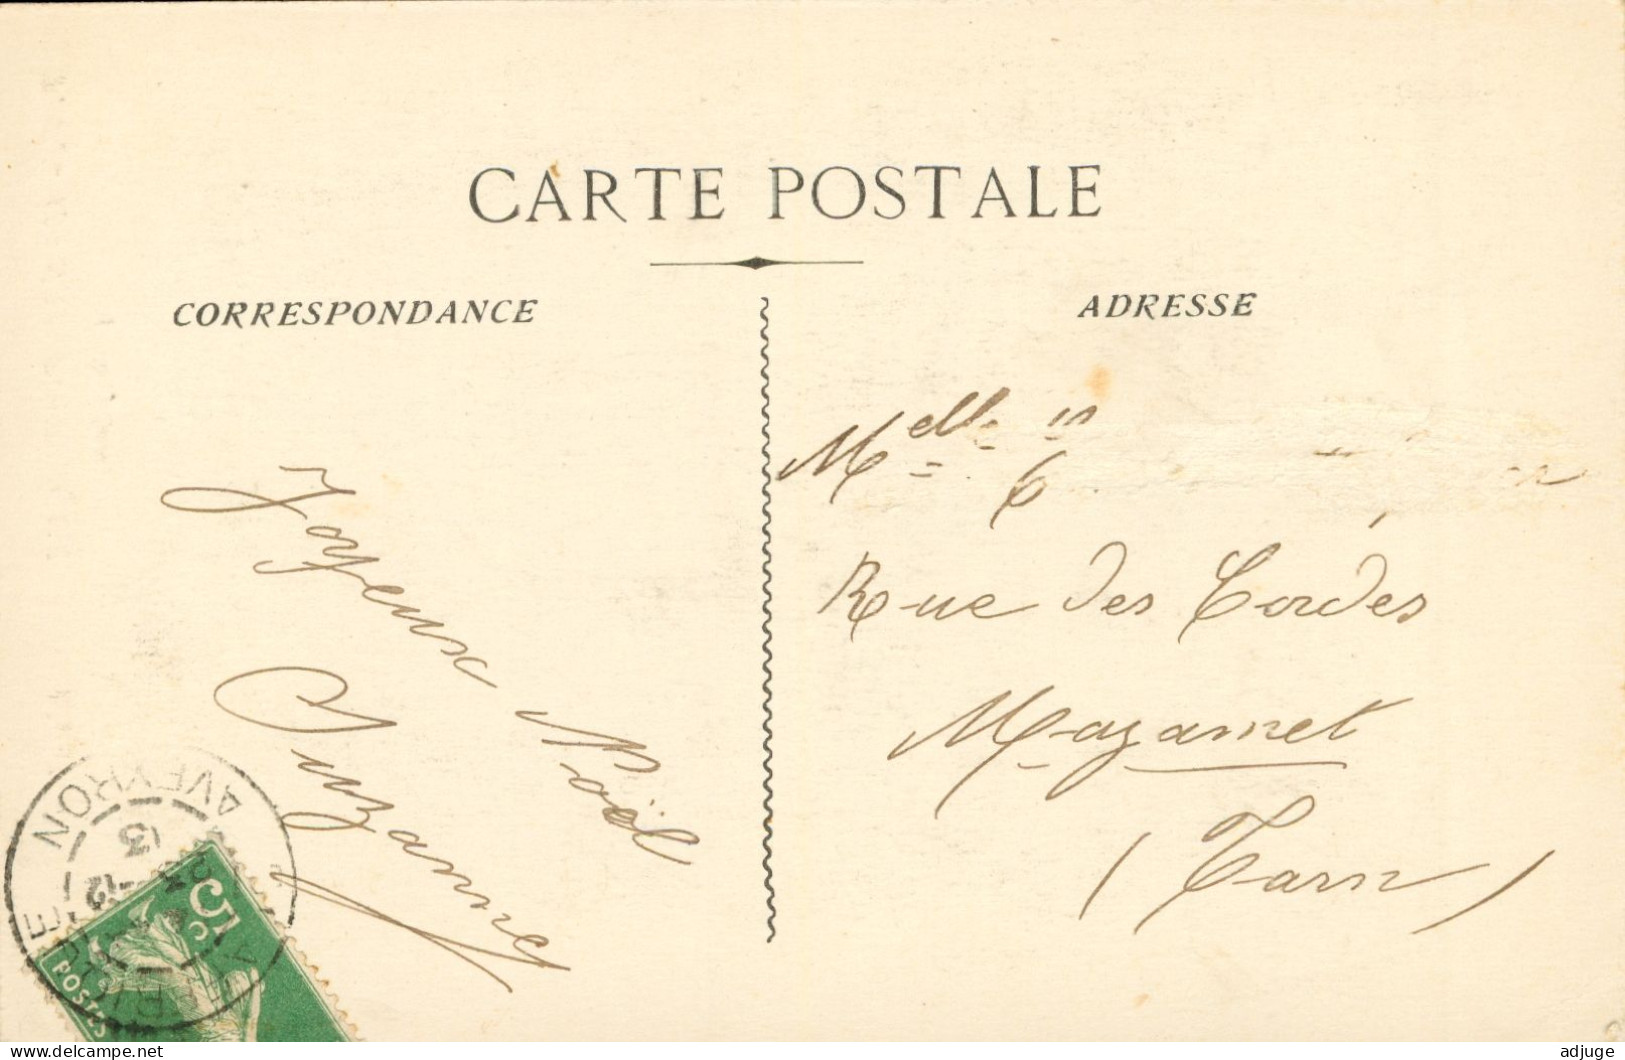 CARTE POSTALE
CORRESPONDANCE
ADRESSE
Joyeux Noël
Suzanne
Melle
Rue des Cordes
Mazamet
(Tarn)
AVEYRON
13
23-12
5c
POSTES
www.delcampe.net
adjuge